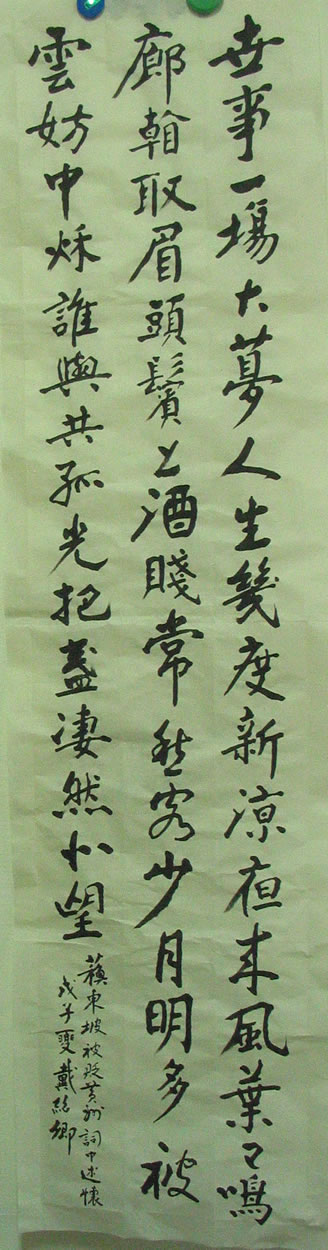 世事一場大夢人生幾度新涼夜來風葉已鳴
廊看取眉頭鬢上酒賤常愁客少月明多被
雲妨中秋誰與共孤光把盞凄然北望
蘇東坡被貶黃州詞中述懷
戊子夏戴